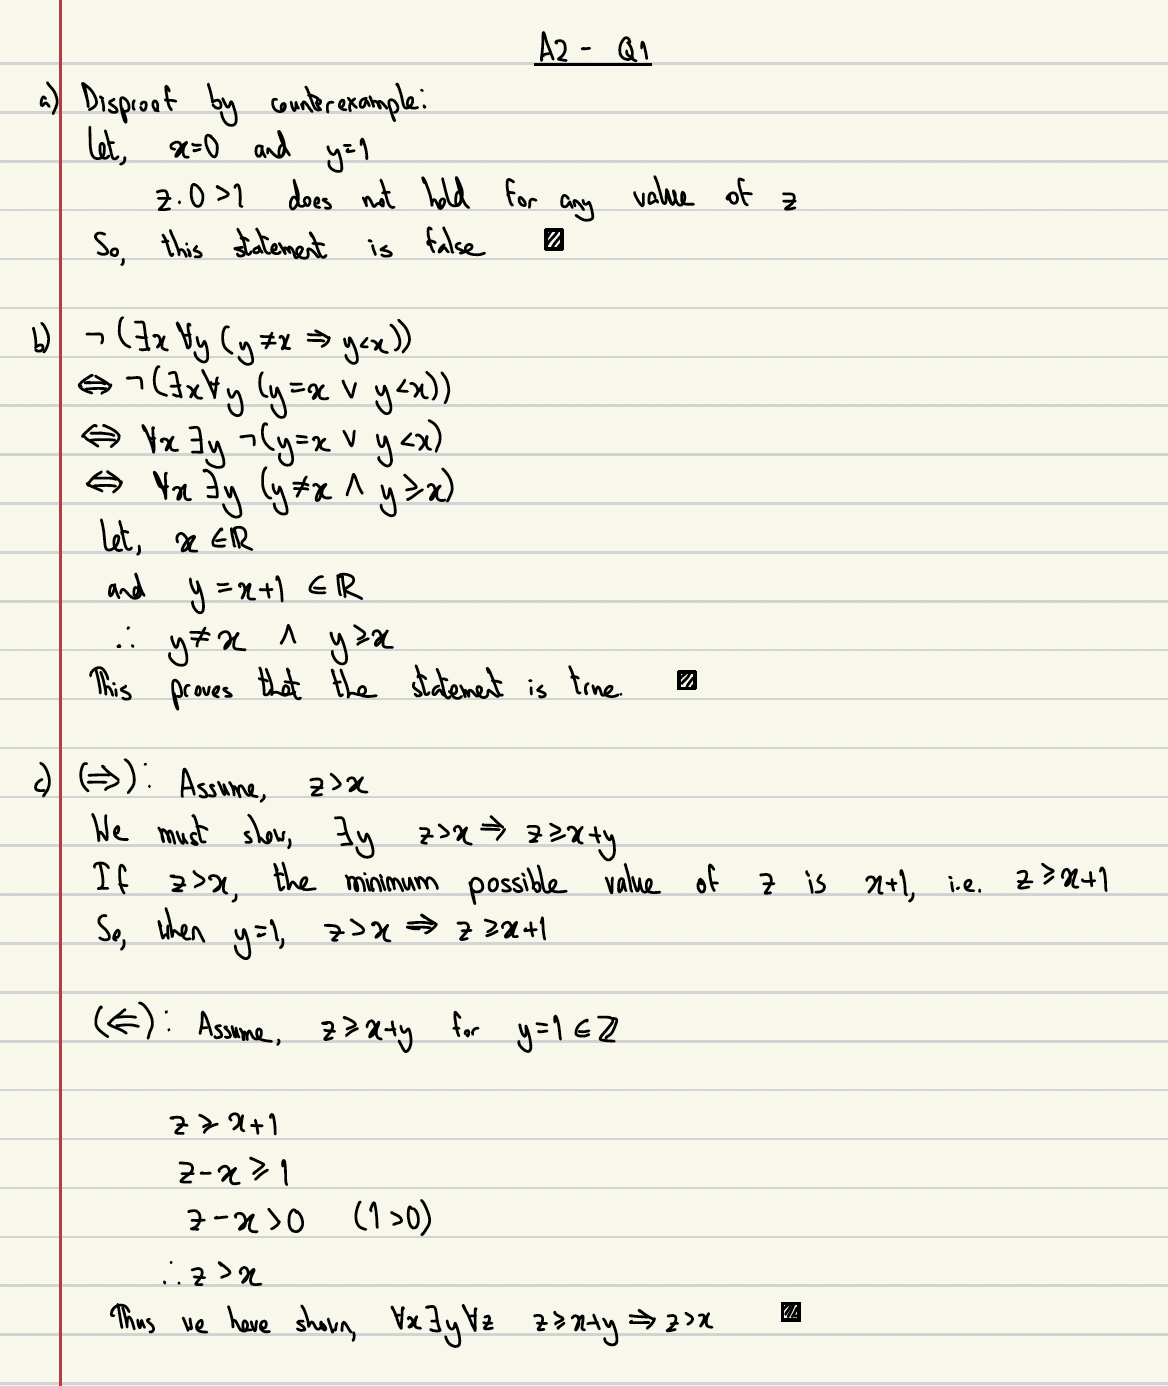 A2 - Q1
a) Disproof by counterexample:
Let, x=0 and y=1
z.0>1 does not hold for any value of z
So, this statement is false
b) ¬(∃x ∀y (y≠x ⇒ y<x))
⇔ ¬(∃x∀y (y=x ∨ y<x))
⇔ ∀x ∃y ¬(y=x ∨ y<x)
⇔ ∀x ∃y (y≠x ∧ y≥x)
Let, x ∈ℝ
and y=x+1 ∈ ℝ
∴ y≠x ∧ y≥x
This proves that the statement is true.
c) (⇒): Assume, z>x
We must show, ∃y z>x ⇒ z≥x+y
If z>x, the minimum possible value of z is x+1, i.e. z≥x+1
So, when y=1, z>x ⇒ z≥x+1
(⇐): Assume, z≥x+y for y=1∈ℤ
z≥x+1
z-x≥1
z-x>0 (1>0)
∴ z>x
Thus we have shown, ∀x∃y∀z z≥x+y ⇒ z>x